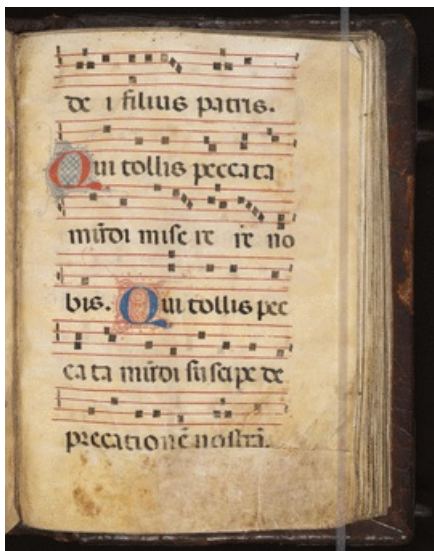 de i filius patris.
Qui tollis peccata
mūdi mise re re no
bis. Qui tollis pec
ca ta mūdi suscipe de
precationē nostrā.